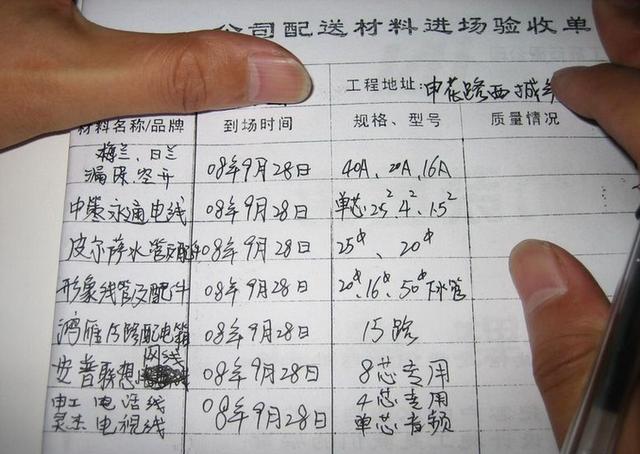 公司配送材料进场验收单
工程地址: 申花路西城
材料名称/品牌 到场时间 规格、型号 质量情况
梅兰、日兰
漏保、空开 08年9月28日 40A、20A、16A
中策永通电线 08年9月28日 单芯2.5² 4² 1.5²
皮尔萨水管及配件 08年9月28日 25φ、20φ
形象线管及配件 08年9月28日 20φ、16φ、50φ下水管
鸿雁15路配电箱 08年9月28日 15路
网线
安普联想 08年9月28日 8芯专用
电工电话线 4芯专用
08年9月28日
电视线 单芯音频